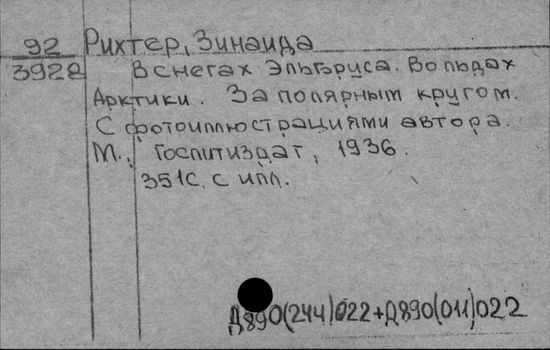 92 Рихтер, Зинаида
3928 В снегах Эльбруса. Во льдах
Арктики. За полярным кругом.
С фотоиллюстрациями автора.
М., Гослитиздат, 1936.
351с. с илл.
Д890(244)022+Д890(011)022